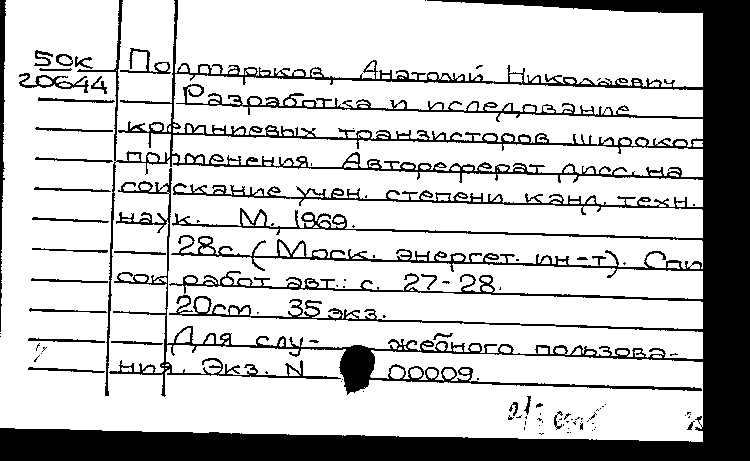 50к Подтарьков, Анатолий Николаевич
20644
Разработка и иследование
кремниевых транзисторов широког
применения. Автореферат дисс. на
соискание учен. степени канд. техн.
наук. М., 1969.
28с. (Моск. энергет. ин-т). Спи
сок работ авт.: с. 27-28.
20см. 35 экз.
Для слу- жебного пользова-
ния. Экз. N 00009.